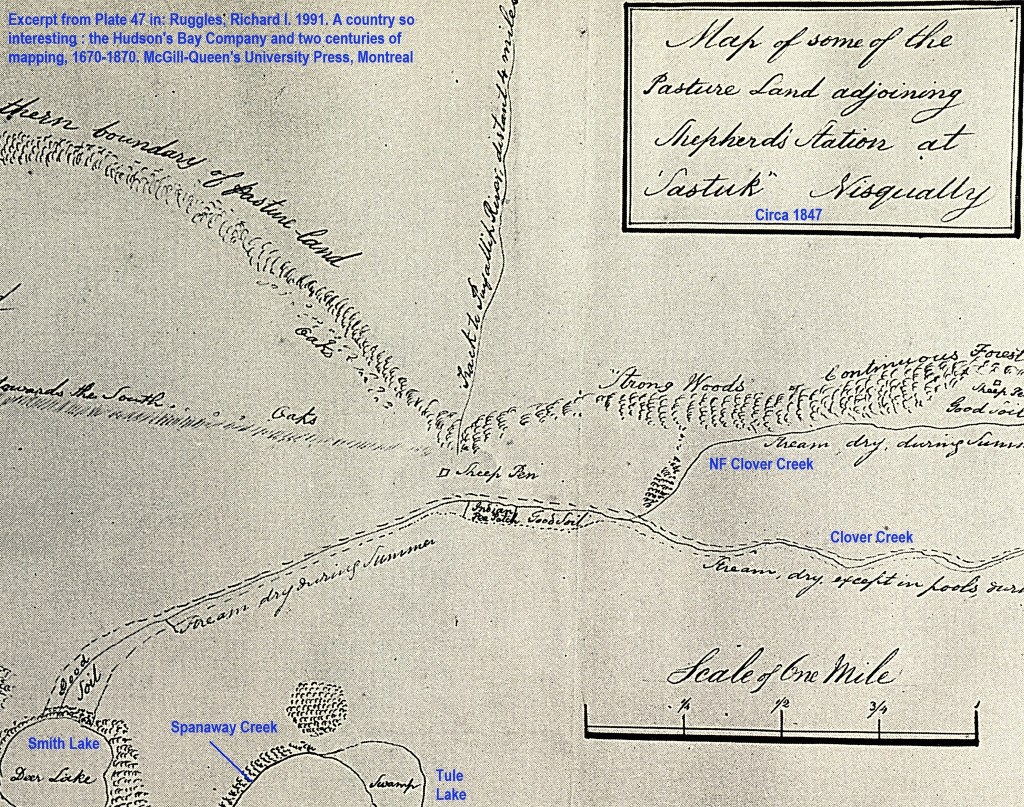 Excerpt from Plate 47 in: Ruggles, Richard I. 1991. A country so
interesting : the Hudson's Bay Company and two centuries of
mapping, 1670-1870. McGill-Queen's University Press, Montreal
Map of some of the
Pasture Land adjoining
Shepherd's Station at
"Sastuk" Nisqually
Circa 1847
thern boundary of pasture land
Track to Puyallip River distant 4 miles
Oaks
towards the South
Oaks
Strong Woods or Continuous Forest
Sheep Pe
Good Soil
Stream, dry, during Summ
NF Clover Creek
Sheep Pen
Indian
Pea Patch
Good Soil
Clover Creek
Stream, dry, except in pools, duri
Stream dry during Summer
Good
Soil
Scale of One Mile
1/4 1/2 3/4 1
Spanaway Creek
Smith Lake
Deer Lake
Swamp
Tule
Lake